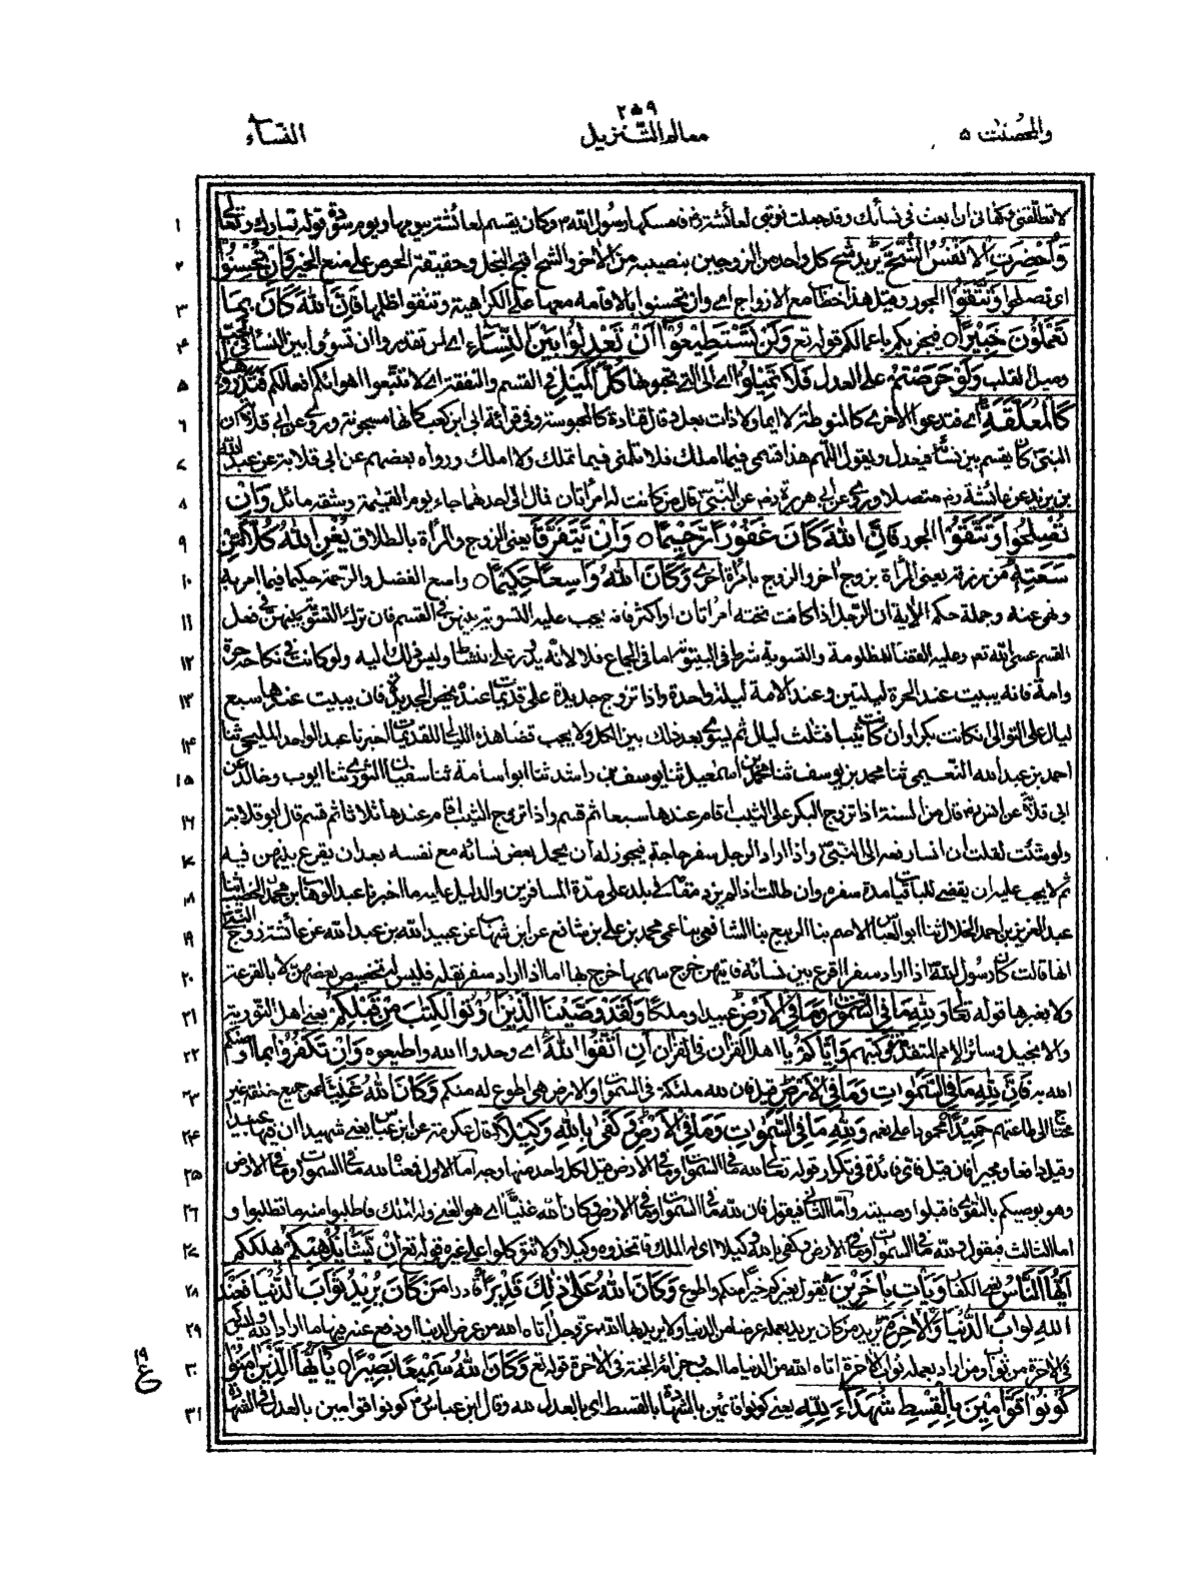 ٢٥٩
والمحصنت ٥ معالم التنزيل النساء
لا تطلقنى وكفانى ان ابعث فى نسائك وقد جعلت نوبتى لعائشة رض فامسكها رسول الله م وكان يقسم لعائشة يومها ويوم سودة قوله تبارك وتعالى ١
وَاُحْضِرَتِ الْاَنْفُسُ الشُّحَّ يريد شح كل واحد من الزوجين بنصيبه من الآخر والشح اقبح البخل وحقيقته الحرص على منع الخير وَاِنْ تُحْسِنُوْا ٢
اى تصلحوا وَتَتَّقُوْا الجور وقيل هذا خطاب مع الازواج اى وان تحسنوا بالاقامة معها على الكراهية وتتقوا ظلمها فَاِنَّ اللّٰهَ كَانَ بِمَا ٣
تَعْمَلُوْنَ خَبِيْرًا ○ فيجزيكم باعمالكم قوله تع وَلَنْ تَسْتَطِيْعُوْٓا اَنْ تَعْدِلُوْا بَيْنَ النِّسَآءِ اى لن تقدروا ان تسووا بين النساء فى الحب ٤
وميل القلب وَلَوْ حَرَصْتُمْ على العدل فَلَا تَمِيْلُوْا اى الى التى تحبونها كُلَّ الْمَيْلِ فى القسم والنفقة اى لا تتبعوا اهوائكم افعالكم فَتَذَرُوْهَا ٥
كَالْمُعَلَّقَةِ اى فتدعوا الاخرى كالمنوطة لا ايما ولا ذات بعل وقال قتادة كالمحبوسة وفى قراءة ابى ابن كعب كانها مسجونة وروى عن ابى قلابة ان ٦
النبى كان يقسم بين نسائه فيعدل ويقول اللهم هذا قسمى فيما املك فلا تلمنى فيما تملك ولا املك ورواه بعضهم عن ابى قلابة عن عبد الله ٧
بن يزيد عن عائشة رض متصلا وروى عن ابى هريرة رض عن النبى قال من كانت له امرأتان فمال الى احدهما جاء يوم القيمة وشقه مائل وَاِنْ ٨
تُصْلِحُوْا وَتَتَّقُوْا الجور فَاِنَّ اللّٰهَ كَانَ غَفُوْرًا رَّحِيْمًا ○ وَاِنْ يَّتَفَرَّقَا يعنى الزوج والمرأة بالطلاق يُغْنِ اللّٰهُ كُلًّا مِّنْ ٩
سَعَتِهٖ من رزقه يعنى المرأة بزوج آخر والزوج بامرأة اخرى وَكَانَ اللّٰهُ وَاسِعًا حَكِيْمًا ○ واسع الفضل والرحمة حكيما فيما امر به ١٠
ونهى عنه وجملة حكم الآية ان الرجل اذا كانت تحته امرأتان او اكثر فانه يجب عليه التسوية بينهن فى القسم فان ترك التسوية بينهن فى فعل ١١
القسم عسى الله تع وعليه القضاء للمظلومة والتسوية شرط فى البيتوتة اما فى الجماع فلا لانه يدور على النشاط وليس ذلك اليه ولو كانت فى نكاحه حرة ١٢
وامة فانه يبيت عند الحرة ليلتين وعند الامة ليلة واحدة واذا تزوج جديدة على قديمات عنده يخص الجديدة فان يبيت عندها سبع ١٣
ليال على التوالى ان كانت بكرا وان كانت ثيبا فثلث ليال ثم يسوى بعد ذلك بين الكل ولا يجب قضاء هذه الليالى للقديمات اخبرنا عبد الواحد المليحى ثنا ١٤
احمد بن عبد الله النعيمى ثنا محمد بن يوسف ثنا محمد بن اسمعيل ثنا يوسف بن راشد ثنا ابو اسامة ثنا سفيان الثورى ثنا ايوب وخالد عن ١٥
ابى قلابة عن انس رض قال من السنة اذا تزوج البكر على الثيب اقام عندها سبعا ثم قسم واذا تزوج الثيب اقام عندها ثلاثا ثم قسم قال ابو قلابة ١٦
ولو شئت لقلت ان انسا رفعه الى النبى واذا اراد الرجل سفر حاجة فيجوز له ان يحمل بعض نسائه مع نفسه بعد ان يقرع بينهن فيه ١٧
ثم لا يجب عليه ان يقضى للباقيات مدة سفره وان طالت اذا لم يزد مقامه فى بلد على مدة المسافرين والدليل عليه ما اخبرنا عبد الوهاب بن محمد الخطيب ثنا ١٨
عبد العزيز بن احمد الخلال ثنا ابو العباس الاصم بنا الربيع بنا الشافعى بنا عمى محمد بن على بن شافع عن ابن شهاب عن عبيد الله بن عبد الله عن عائشة زوج النبى ١٩
انها قالت كان رسول الله اذا اراد سفرا اقرع بين نسائه فايتهن خرج سهمها خرج بها اما اذا اراد سفر نقلة فليس له تخصيص بعضهن لا بالقرعة ٢٠
ولا بغيرها قوله تعالى وَلِلّٰهِ مَا فِى السَّمٰوٰتِ وَمَا فِى الْاَرْضِ عبيدا وملكا وَلَقَدْ وَصَّيْنَا الَّذِيْنَ اُوْتُوا الْكِتٰبَ مِنْ قَبْلِكُمْ يعنى اهل التورية ٢١
والانجيل وسائر الامم المتقدمة فى كتبهم وَاِيَّاكُمْ يا اهل القرآن فى القرآن اَنِ اتَّقُوا اللّٰهَ اى وحدوا الله واطيعوه وَاِنْ تَكْفُرُوْا بما اوصاكم ٢٢
الله به فَاِنَّ لِلّٰهِ مَا فِى السَّمٰوٰتِ وَمَا فِى الْاَرْضِ قيل فان لله ملئكة فى السموات والارض هى اطوع له منكم وَكَانَ اللّٰهُ غَنِيًّا عن جميع خلقه غير ٢٣
محتاج الى طاعتهم حَمِيْدًا محمودا على نعمه وَلِلّٰهِ مَا فِى السَّمٰوٰتِ وَمَا فِى الْاَرْضِ وَكَفٰى بِاللّٰهِ وَكِيْلًا قال عكرمة عن ابن عباس يعنى شهيدا ان فيها عبيدا ٢٤
وقيل دافعا ومجيرا فان قيل فاى فائدة فى تكرار قوله تعالى لله ما فى السموات وما فى الارض قيل لكل واحد منها وجه اما الاول فمعناه لله ما فى السموات وما فى الارض ٢٥
وهو يوصيكم بالتقوى فاقبلوا وصيته واما الثانى فيقول فان لله ما فى السموات وما فى الارض وكان الله غنيا اى هو الغنى وله الملك فاطلبوا منه ما تطلبوا و ٢٦
اما الثالث فيقول ولله ما فى السموات وما فى الارض وكفى بالله وكيلا اى له الملك فاتخذوه وكيلا ولا تتوكلوا على غيره قوله تع اِنْ يَّشَاْ يُذْهِبْكُمْ يهلككم ٢٧
اَيُّهَا النَّاسُ يعنى الكفار وَيَاْتِ بِاٰخَرِيْنَ يقول بغيركم خير منكم واطوع وَكَانَ اللّٰهُ عَلٰى ذٰلِكَ قَدِيْرًا قادرا مَنْ كَانَ يُرِيْدُ ثَوَابَ الدُّنْيَا فَعِنْدَ ٢٨
اللّٰهِ ثَوَابُ الدُّنْيَا وَالْاٰخِرَةِ يريد من كان يريد بعمله عرضا من الدنيا ولا يريد بها الله عز وجل اتاه الله من عرض الدنيا او دفع عنه فيها ما اراد الله وليس له ٢٩
فى الآخرة من ثواب ومن اراد بعمله ثواب الآخرة اتاه الله من الدنيا ما احب وجزاؤه الجنة فى الآخرة قوله تع وَكَانَ اللّٰهُ سَمِيْعًا بَصِيْرًا ○ يٰٓاَيُّهَا الَّذِيْنَ اٰمَنُوْا ٣٠
كُوْنُوْا قَوّٰمِيْنَ بِالْقِسْطِ شُهَدَآءَ لِلّٰهِ يعنى كونوا قائمين بالشهادة بالقسط اى بالعدل لله وقال ابن عباس كونوا قوامين بالعدل فى الشهادة ٣١
١٩
ع